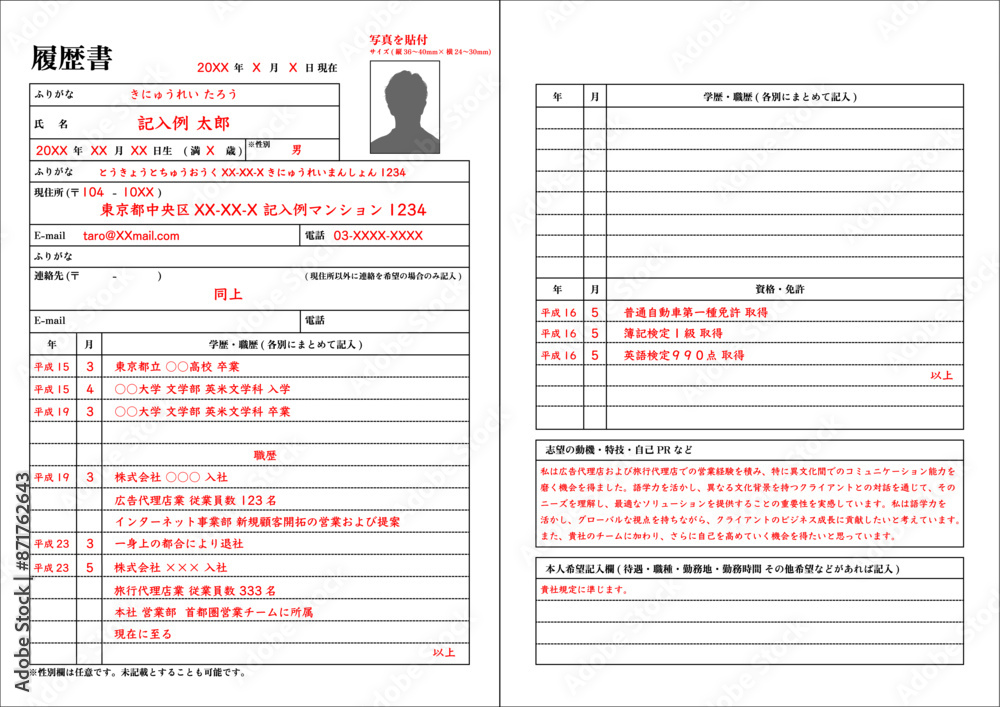 履歴書
20XX 年 X 月 X 日 現在
写真を貼付
サイズ ( 縦 36～40mm× 横 24～30mm)
ふりがな きにゅうれい たろう
氏 名 記入例 太郎
20XX 年 XX 月 XX 日生 ( 満 X 歳 ) ※性別 男
ふりがな とうきょうとちゅうおうく XX-XX-X きにゅうれいまんしょん 1234
現住所 (〒 104 - 10XX )
東京都中央区 XX-XX-X 記入例マンション 1234
E-mail taro@XXmail.com 電話 03-XXXX-XXXX
ふりがな
連絡先 (〒 - ) ( 現住所以外に連絡を希望の場合のみ記入 )
同上
E-mail 電話
年 月 学歴・職歴 ( 各別にまとめて記入 )
平成 15 3 東京都立 〇〇高校 卒業
平成 15 4 〇〇大学 文学部 英米文学科 入学
平成 19 3 〇〇大学 文学部 英米文学科 卒業
職歴
平成 19 3 株式会社 〇〇〇 入社
広告代理店業 従業員数 123 名
インターネット事業部 新規顧客開拓の営業および提案
平成 23 3 一身上の都合により退社
平成 23 5 株式会社 ××× 入社
旅行代理店業 従業員数 333 名
本社 営業部 首都圏営業チームに所属
現在に至る
以上
※性別欄は任意です。未記載とすることも可能です。
年 月 学歴・職歴 ( 各別にまとめて記入 )
年 月 資格・免許
平成 16 5 普通自動車第一種免許 取得
平成 16 5 簿記検定 1 級 取得
平成 16 5 英語検定９９０点 取得
以上
志望の動機・特技・自己 PR など
私は広告代理店および旅行代理店での営業経験を積み、特に異文化間でのコミュニケーション能力を
磨く機会を得ました。語学力を活かし、異なる文化背景を持つクライアントとの対話を通じて、その
ニーズを理解し、最適なソリューションを提供することの重要性を実感しています。私は語学力を
活かし、グローバルな視点を持ちながら、クライアントのビジネス成長に貢献したいと考えています。
また、貴社のチームに加わり、さらに自己を高めていく機会を得たいと思っています。
本人希望記入欄 ( 待遇・職種・勤務地・勤務時間 その他希望などがあれば記入 )
貴社規定に準じます。
Adobe Stock | #871762643